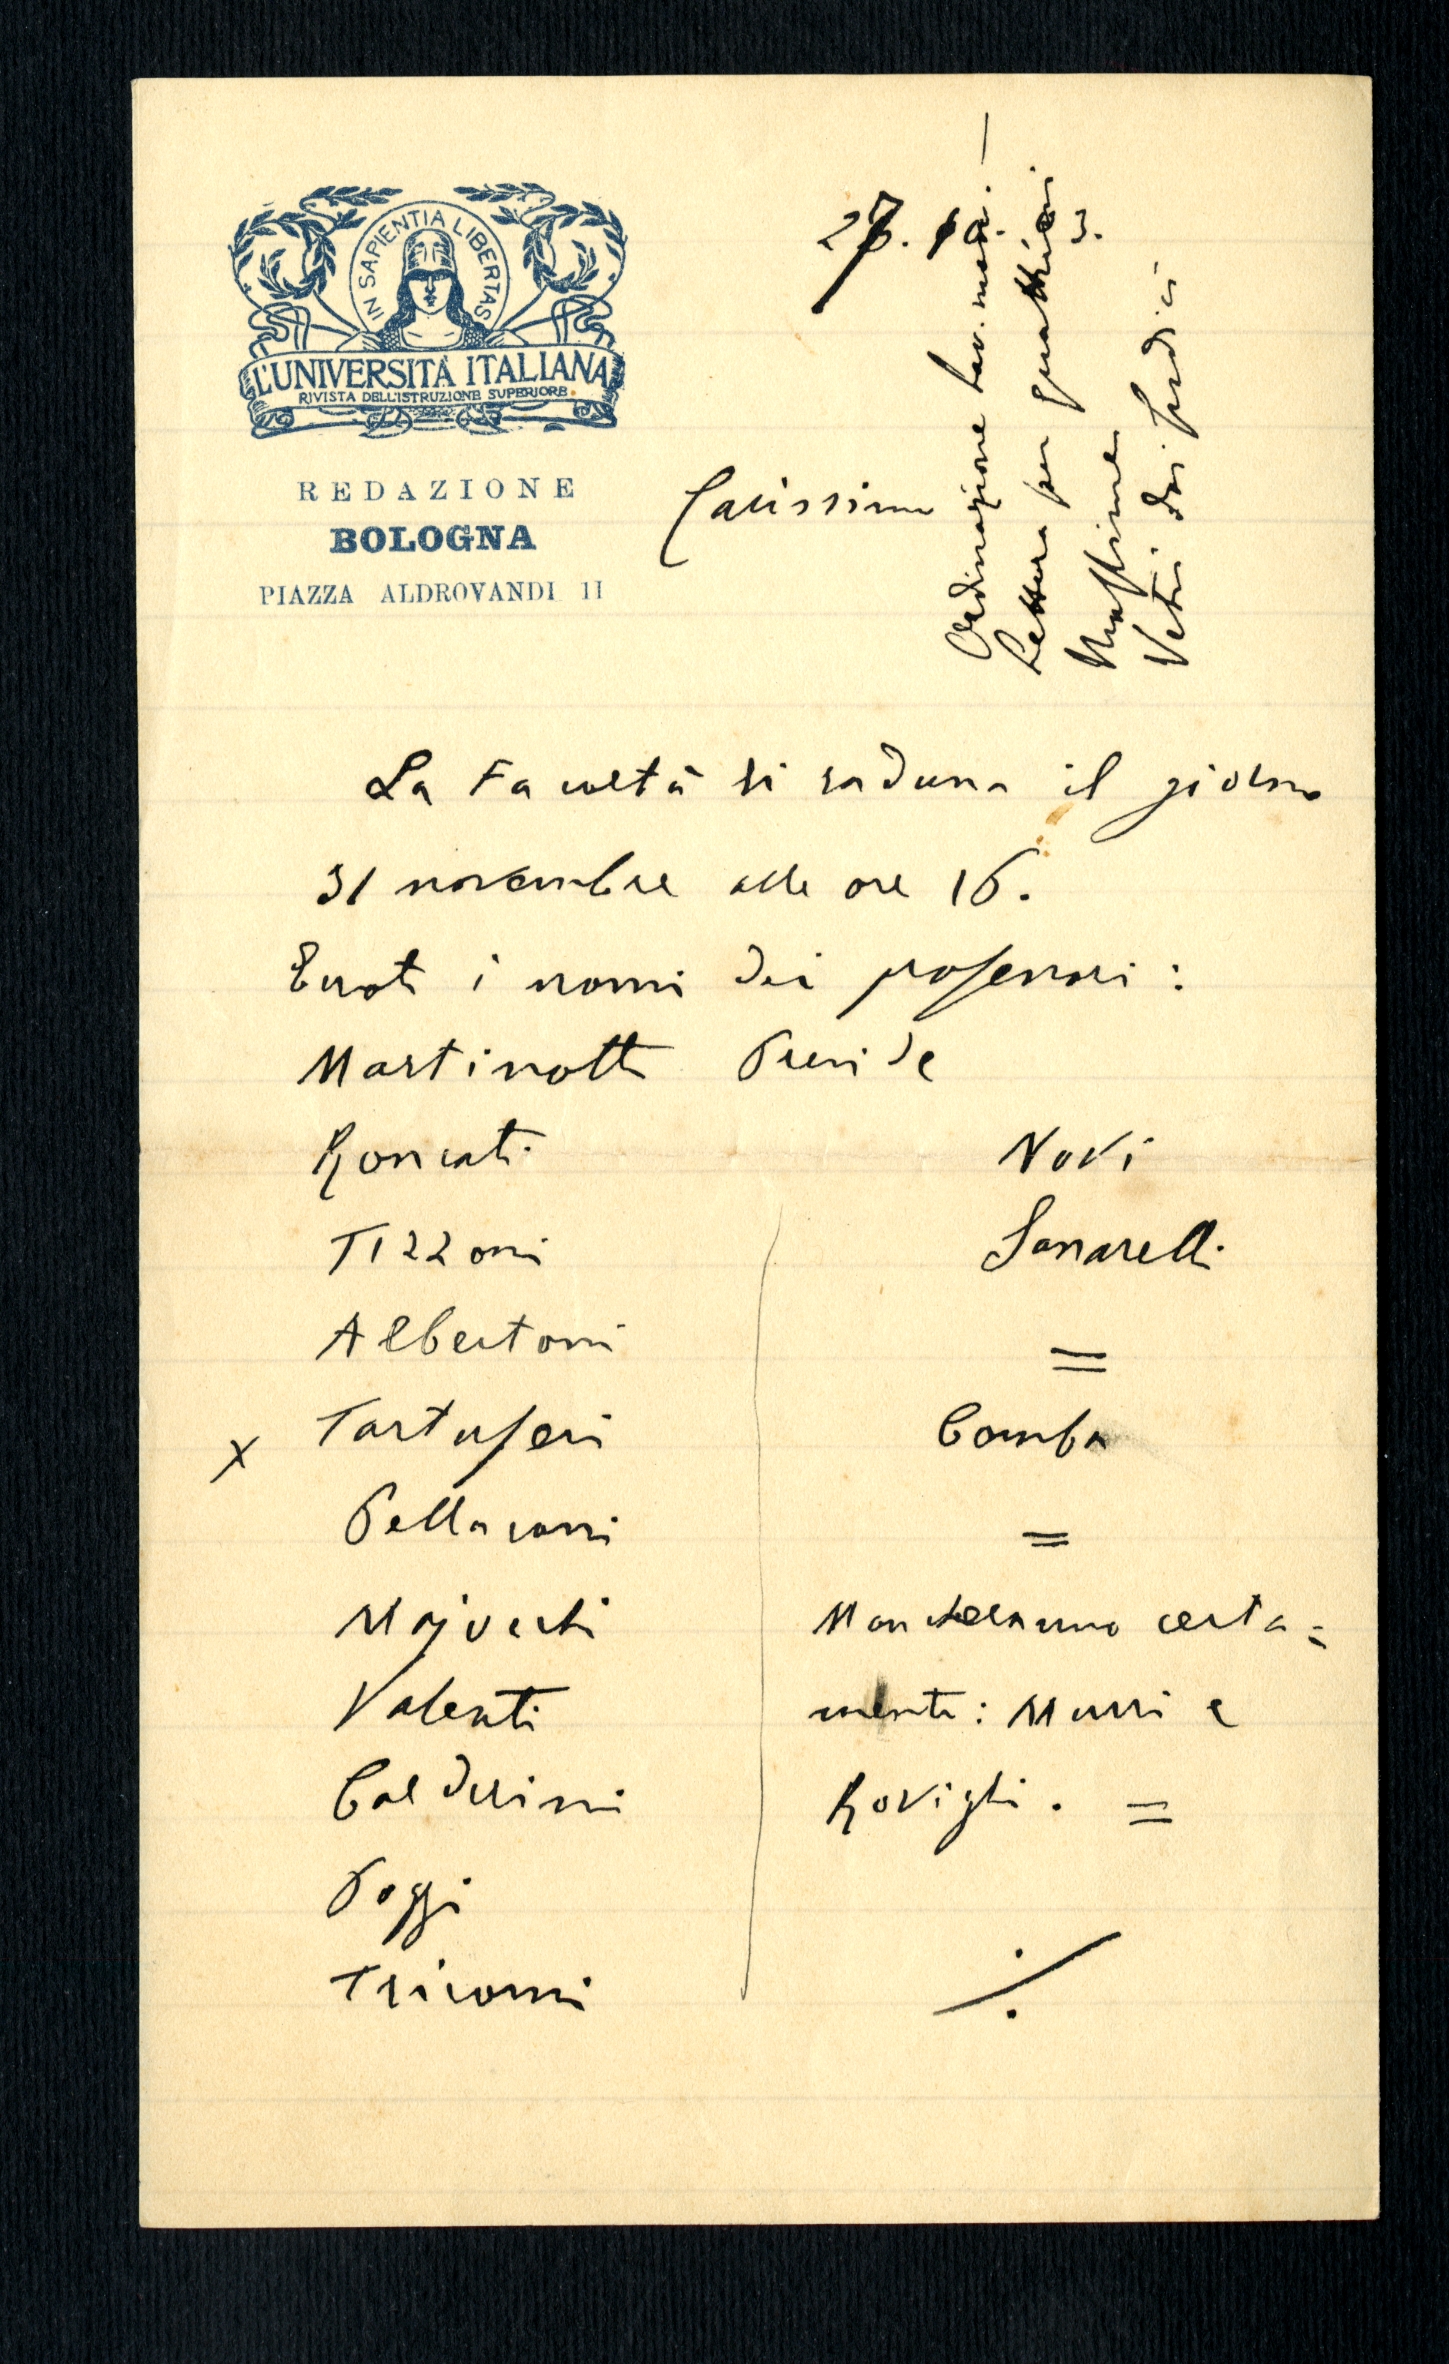 IN SAPIENTIA LIBERTAS
L'UNIVERSITÀ ITALIANA
RIVISTA DELL'ISTRUZIONE SUPERIORE
REDAZIONE
BOLOGNA
PIAZZA ALDROVANDI 11
27. 10. 3.
Carissimo
Ordinazione lav. man.
Lettera per quattrini
Vetri dei
La Facoltà si raduna il giorno
31 novembre alle ore 16.
Eccoti i nomi dei professori:
Martinotti Preside
Roncati
Tizzoni
Albertoni
x Tartuferi
Pellacani
Majocchi
Valenti
Calderini
Poggi
Tricomi
Novi
Sanarelli
=
Comba
=
Mancheranno certa=
mente: Murri e
Rovighi. =